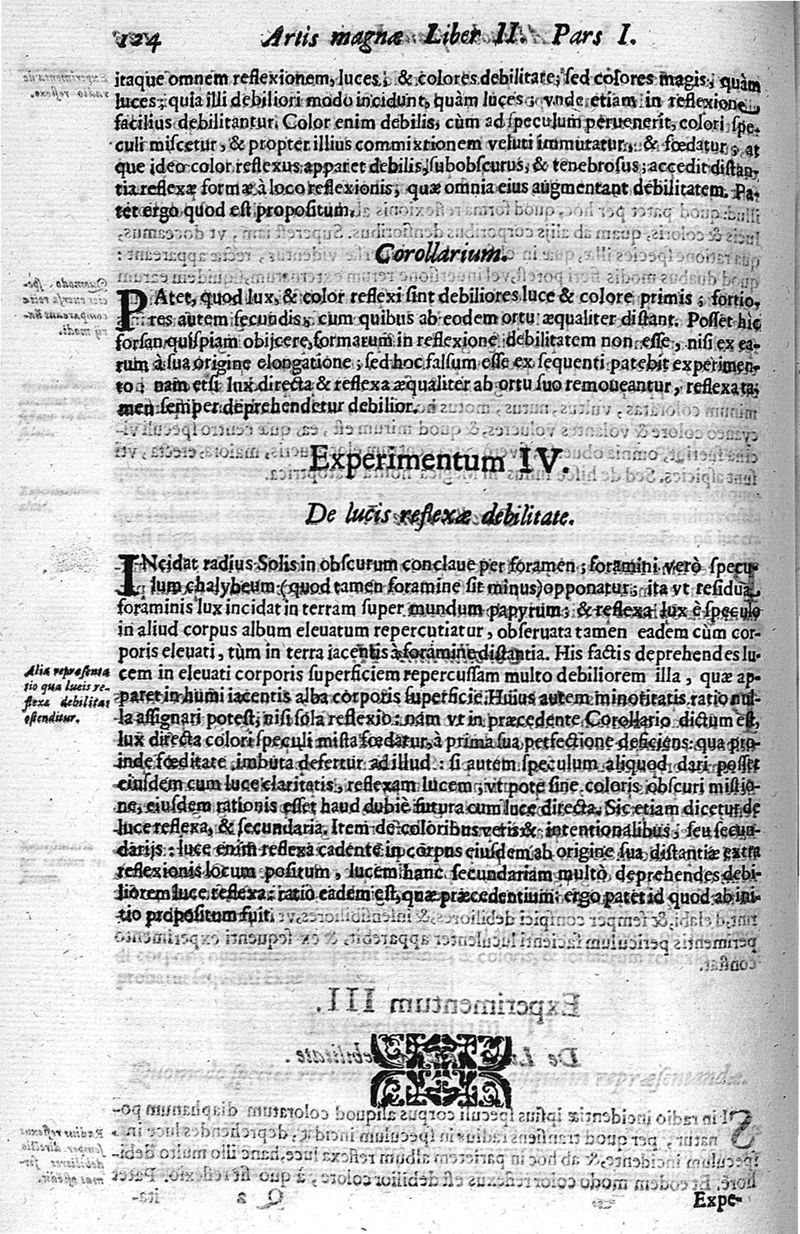 124 Artis magnæ Liber II. Pars I.
itaque omnem reflexionem, luces, & colores debilitate, sed colores magis, quàm
luces; quia illi debiliori modo incidunt, quàm luces; vnde etiam in reflexione
facilius debilitantur. Color enim debilis, cùm ad speculum peruenerit, colori spe-
culi miscetur, & propter illius commixtionem veluti immutatur, & fœdatur; at-
que ideo color reflexus apparet debilis, subobscurus, & tenebrosus; accedit distan-
tia reflexæ formæ à loco reflexionis, quæ omnia eius augmentant debilitatem. Pa-
tet ergo quod est propositum.
Corollarium.
PAtet, quod lux, & color reflexi sint debiliores luce & colore primis; fortio-
res autem secundis, cum quibus ab eodem ortu æqualiter distant. Posset hîc
forsan quispiam obijcere, formarum in reflexione debilitatem non esse, nisi ex ea-
rum à sua origine elongatione; sed hoc falsum esse ex sequenti patebit experimen-
to; nam etsi lux directa & reflexa æqualiter ab ortu suo remoueantur, reflexa ta-
men semper deprehendetur debilior.
Experimentum IV.
De lucis reflexæ debilitate.
INcidat radius Solis in obscurum conclaue per foramen; foramini verò specu-
lum chalybeum (quod tamen foramine sit minus) opponatur; ita vt residua
foraminis lux incidat in terram super mundum papyrum; & reflexa lux è speculo
in aliud corpus album eleuatum repercutiatur, obseruata tamen eadem cùm cor-
poris eleuati, tùm in terra iacentis à foramine distantia. His factis deprehendes lu-
cem in eleuati corporis superficiem repercussam multo debiliorem illa, quæ ap-
paret in humi iacentis alba corporis superficie. Huius autem minoritatis ratio nul-
la assignari potest, nisi sola reflexio: nam vt in præcedente Corollario dictum est,
lux directa colori speculi mista fœdatur, à prima sua perfectione deficiens: qua pro-
inde fœditate imbuta defertur ad illud: si autem speculum aliquod dari posset
eiusdem cum luce claritatis, reflexam lucem, vt pote sine coloris obscuri mistio-
ne, eiusdem rationis esset haud dubiè futura cum luce directa. Sic etiam dicetur de
luce reflexa, & secundaria. Item de coloribus veris & intentionalibus, seu secun-
darijs: luce enim reflexa cadente in corpus eiusdem ab origine sua distantiæ extra
reflexionis locum positum, lucem hanc secundariam multò deprehendes debi-
liorem luce reflexa: ratio eadem est, quæ præcedentium: ergo patet id quod ab ini-
tio propositum fuit.
Alia repræsenta
tio qua lucis re-
flexa debilitas
ostenditur.
Expe-